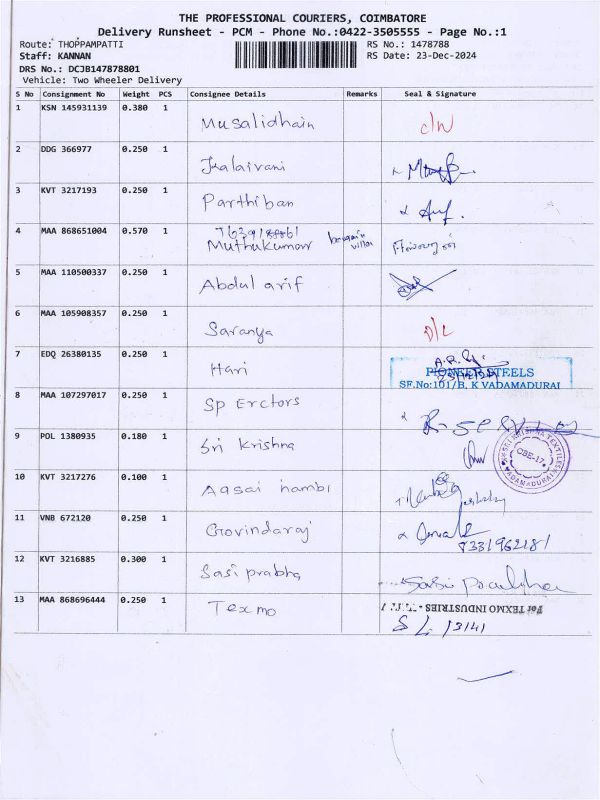 THE PROFESSIONAL COURIERS, COIMBATORE
Delivery Runsheet - PCM - Phone No.:0422-3505555 - Page No.:1
Route: THOPPAMPATTI RS No.: 1478788
Staff: KANNAN RS Date: 23-Dec-2024
DRS No.: DCJB147878801
Vehicle: Two Wheeler Delivery
S No Consignment No Weight PCS Consignee Details Remarks Seal & Signature
1 KSN 145931139 0.380 1 Musalidhain
2 DDG 366977 0.250 1 Kalaivani
3 KVT 3217193 0.250 1 Parthiban
4 MAA 868651004 0.570 1 Muthukumar
5 MAA 110500337 0.250 1 Abdul arif
6 MAA 105908357 0.250 1 Saranya D/L
7 EDQ 26380135 0.250 1 Hari
PIONEER STEELS
SF.No:101/B, K VADAMADURAI
8 MAA 107297017 0.250 1 SP Erctors
9 POL 1380935 0.180 1 Sri Krishna
SRI KRISHNA TEXTILES
CBE-17
VADAMADURAI
10 KVT 3217276 0.100 1 Aasai nambi
11 VNB 672120 0.250 1 Govindaraj
12 KVT 3216885 0.300 1 Sasi prabha Sasi Prabha
13 MAA 868696444 0.250 1 Texmo
For TEXMO INDUSTRIES